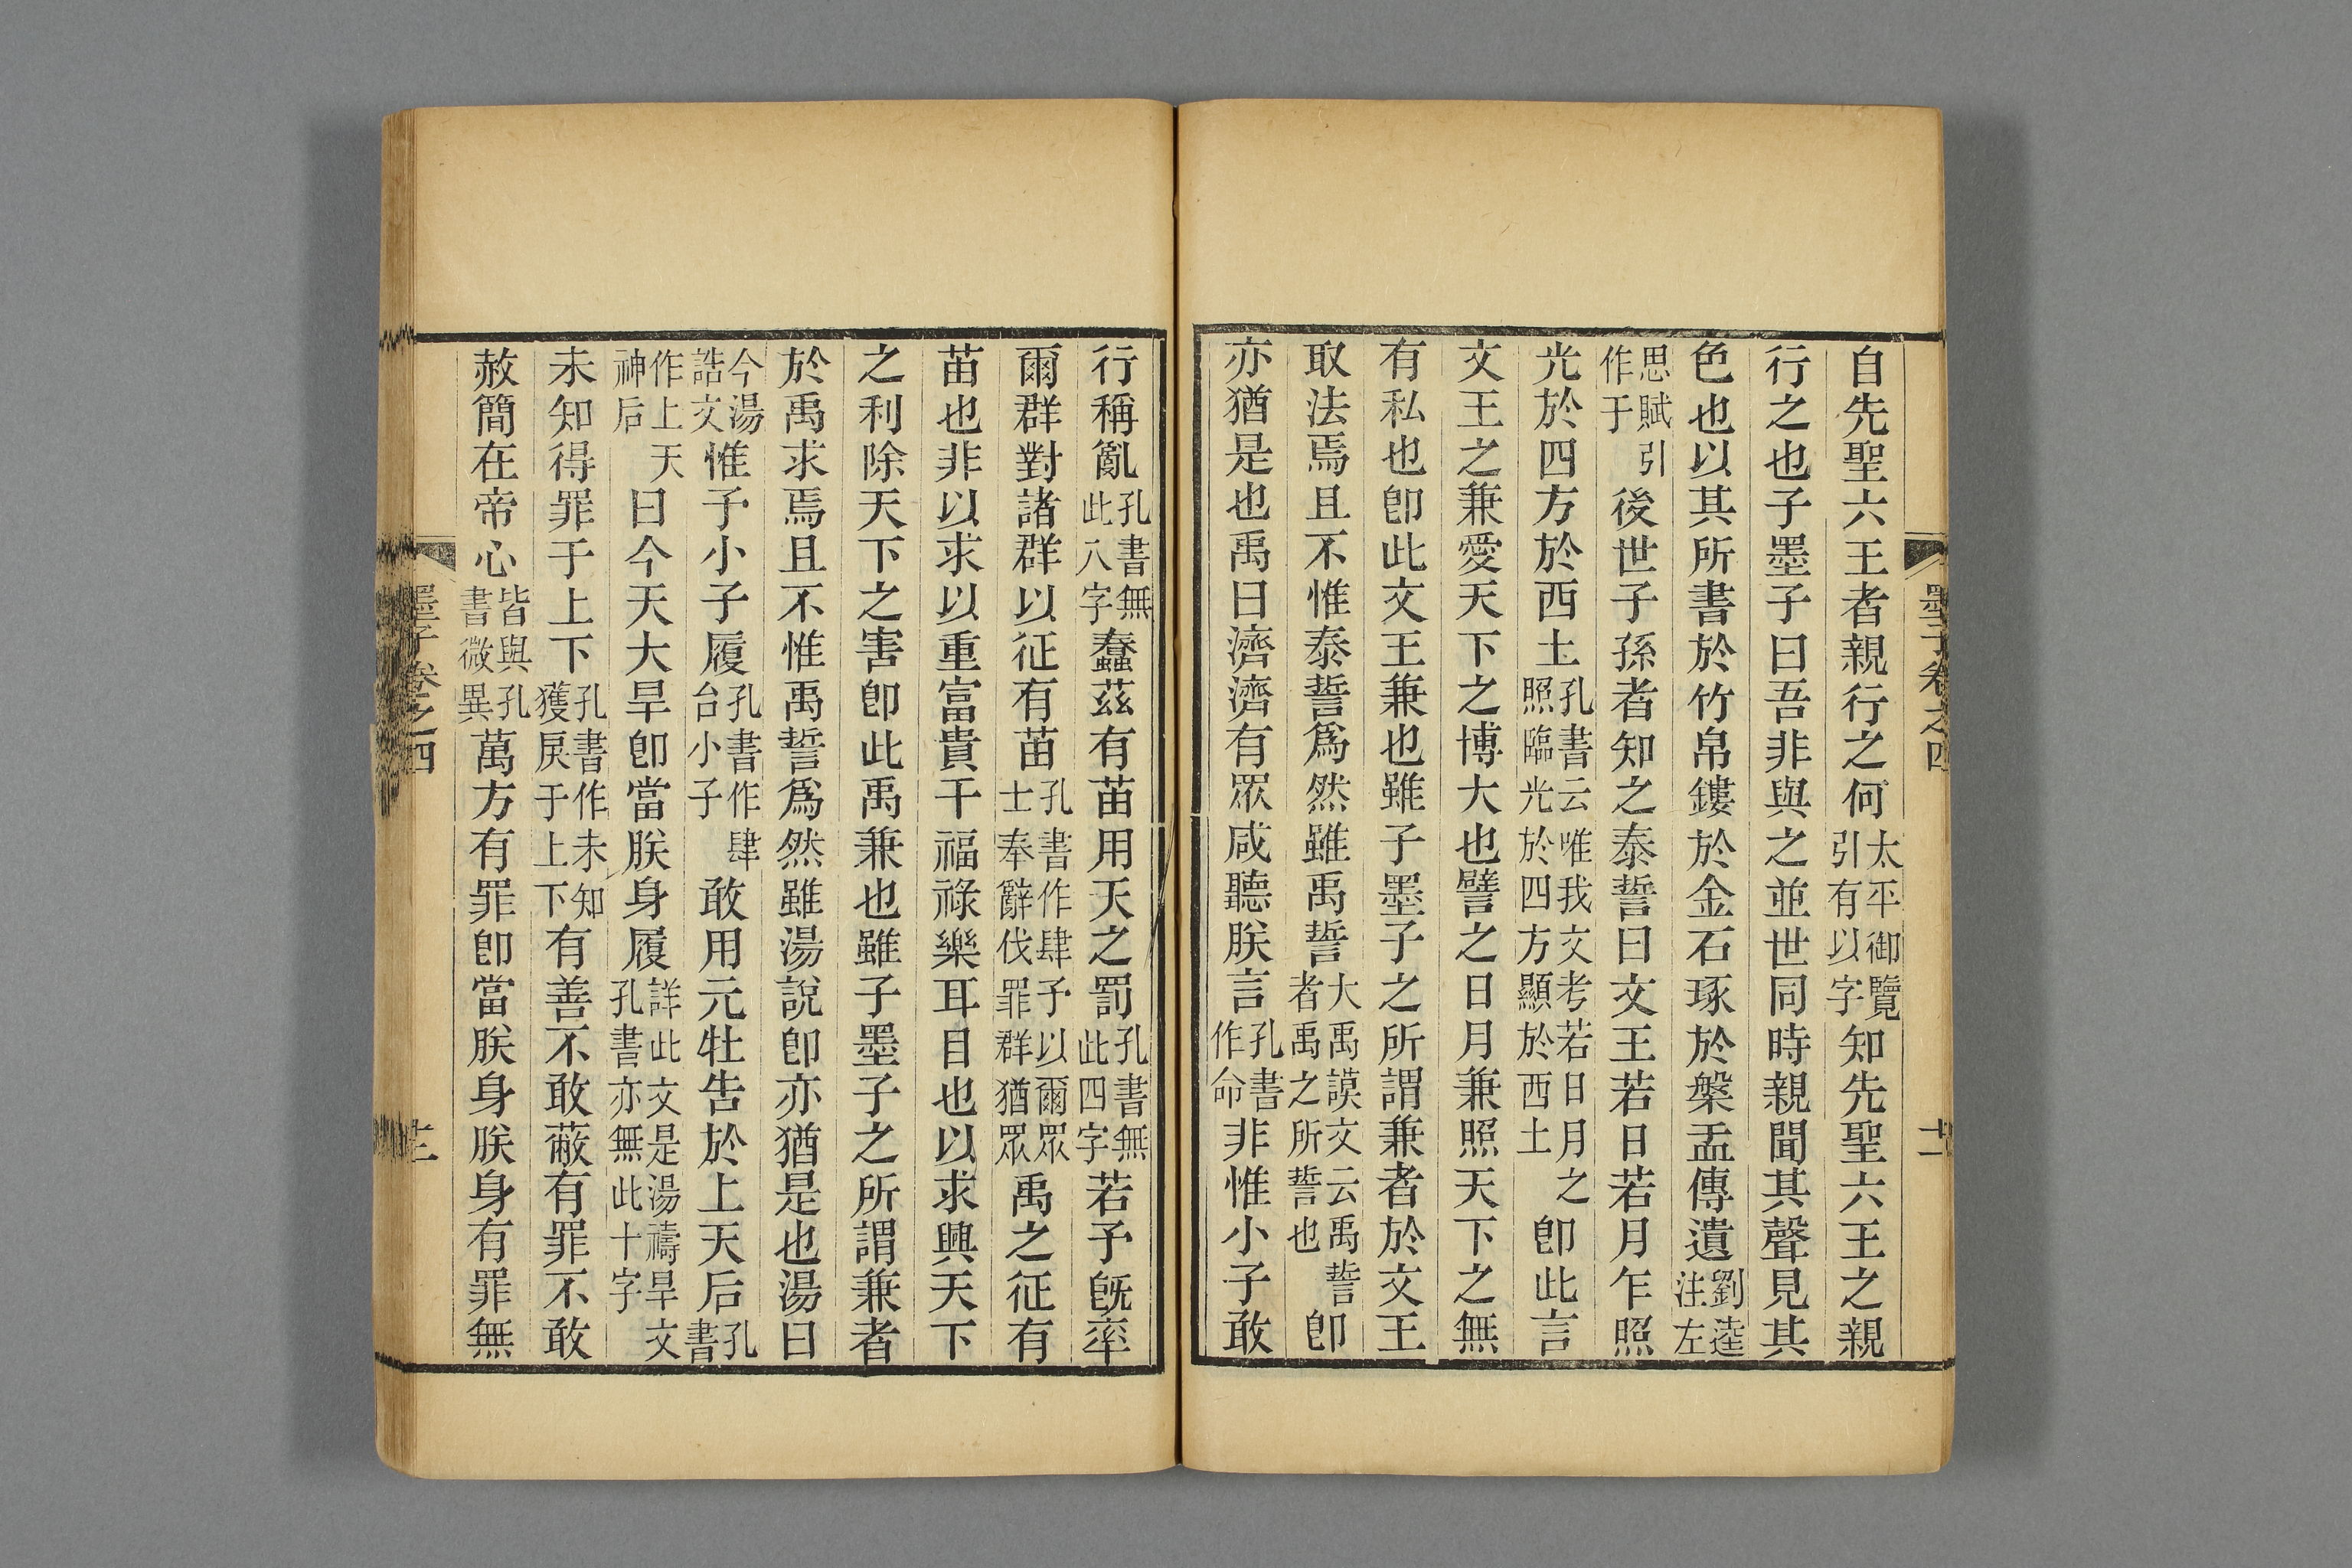 自先聖六王者親行之何太平御覽引有以字知先聖六王之親
行之也子墨子曰吾非與之並世同時親聞其聲見其
色也以其所書於竹帛鏤於金石琢於槃盂傳遺劉逵注左
思賦引作于後世子孫者知之泰誓曰文王若日若月乍照
光於四方於西土孔書云唯我文考若日月之照臨光於四方顯於西土卽此言
文王之兼愛天下之博大也譬之日月兼照天下之無
有私也卽此文王兼也雖子墨子之所謂兼者於文王
取法焉且不惟泰誓爲然雖禹誓大禹謨文云禹誓者禹之所誓也卽
亦猶是也禹曰濟濟有眾咸聽朕言孔書作命非惟小子敢
墨子卷之四
十二
行稱亂孔書無此八字蠢茲有苗用天之罰孔書無此四字若予旣率
爾群對諸群以征有苗孔書作肆予以爾眾士奉辭伐罪群猶眾禹之征有
苗也非以求以重富貴干福祿樂耳目也以求興天下
之利除天下之害卽此禹兼也雖子墨子之所謂兼者
於禹求焉且不惟禹誓爲然雖湯說卽亦猶是也湯曰
今湯誥文惟予小子履孔書作肆台小子敢用元牡告於上天后孔書
作上天神后曰今天大旱卽當朕身履詳此文是湯禱旱文孔書亦無此十字
未知得罪于上下孔書作未知獲戾于上下有善不敢蔽有罪不敢
赦簡在帝心皆與孔書微異萬方有罪卽當朕身朕身有罪無
墨子卷之四